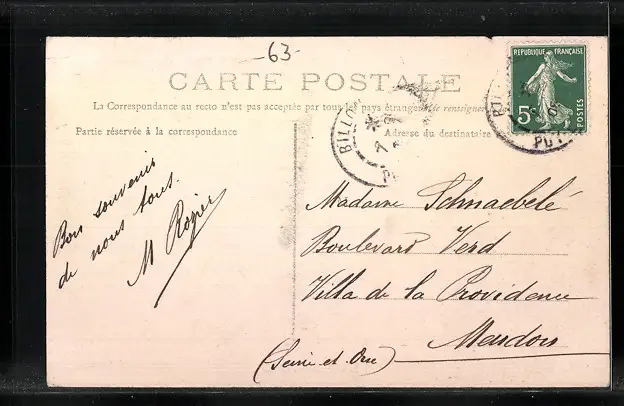 -63-
CARTE POSTALE
La Correspondance au recto n'est pas acceptée par tous les pays étrangers (Se renseigner
Partie réservée à la correspondance
Adresse du destinataire
REPUBLIQUE FRANÇAISE
5c
POSTES
BILLO
*
PUY
Bon souvenir
de nous tous.
M Rogier
Madame Schnaebelé
Boulevard Verd
Villa de la Providence
Meudon
(Seine et Oise)